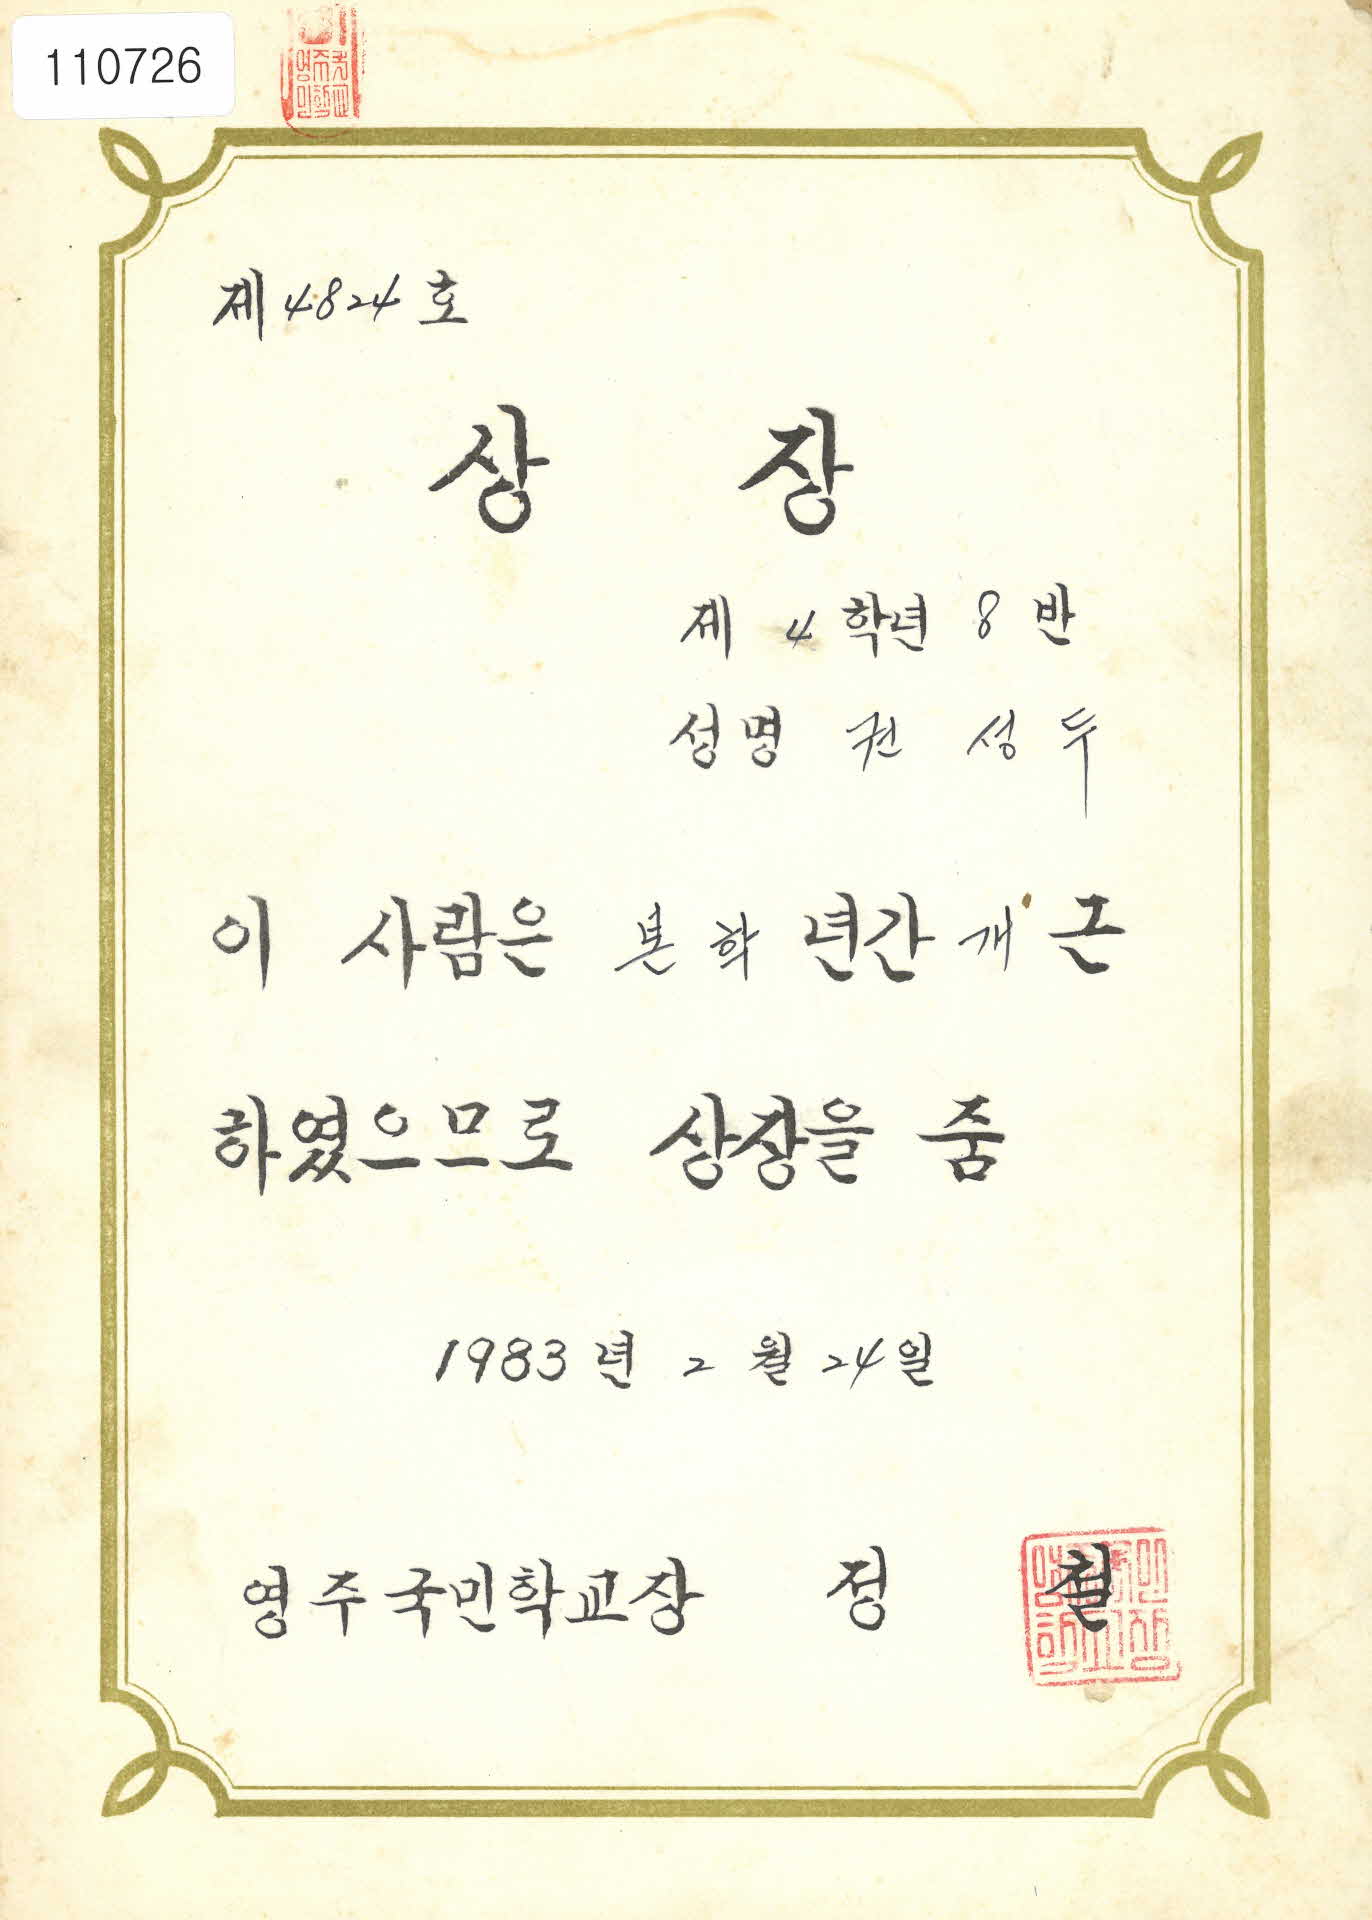 110726
제 4824 호
상 장
제 4 학년 8 반
성명 권 성 두
이 사람은 본 학 년간 개 근
하였으므로 상장을 줌
1983 년 2 월 24 일
영주국민학교장 정 철